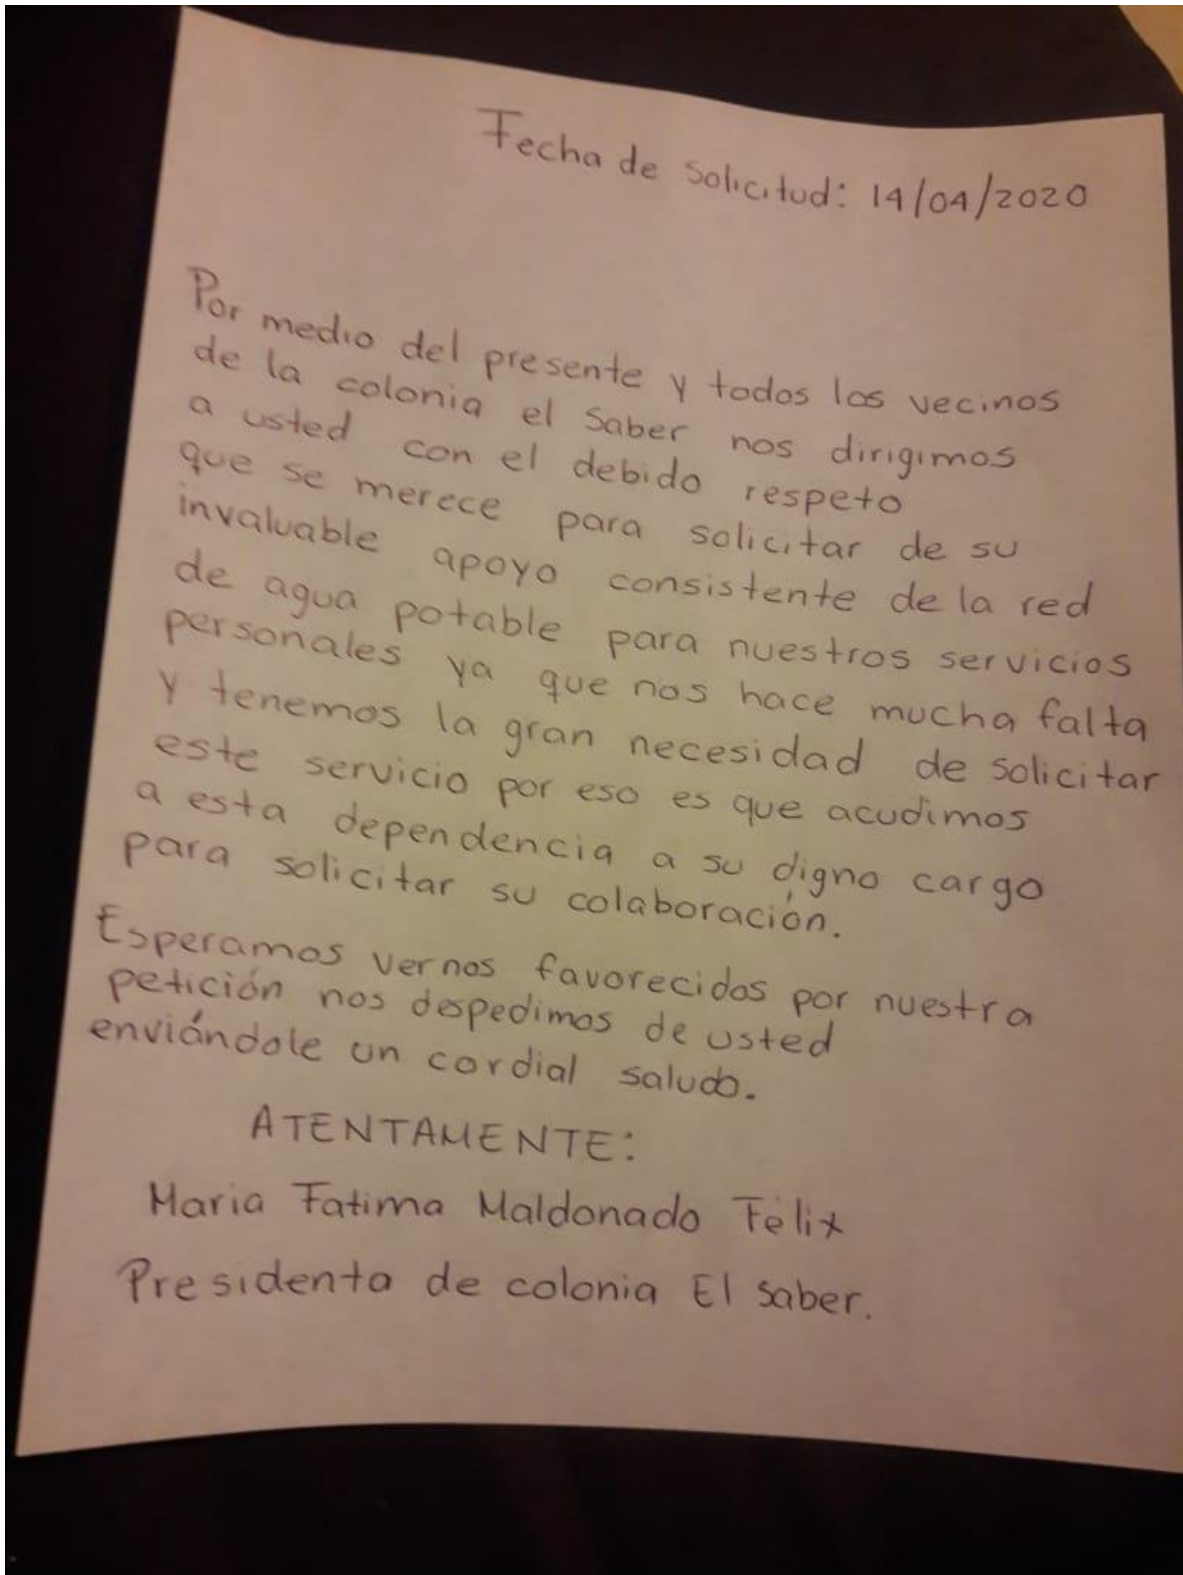 Fecha de solicitud: 14/04/2020
Por medio del presente y todos los vecinos
de la colonia el Saber nos dirigimos
a usted con el debido respeto
que se merece para solicitar de su
invaluable apoyo consistente de la red
de agua potable para nuestros servicios
personales ya que nos hace mucha falta
y tenemos la gran necesidad de solicitar
este servicio por eso es que acudimos
a esta dependencia a su digno cargo
para solicitar su colaboración.
Esperamos vernos favorecidos por nuestra
petición nos despedimos de usted
enviándole un cordial saludo.
ATENTAMENTE:
Maria Fatima Maldonado Félix
Presidenta de colonia El saber.